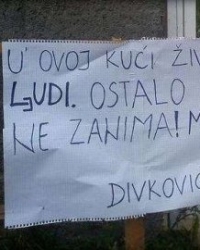 U' OVOJ KUĆI ŽI
LJUDI. OSTALO
NE ZANIMA! M
DIVKOVIC